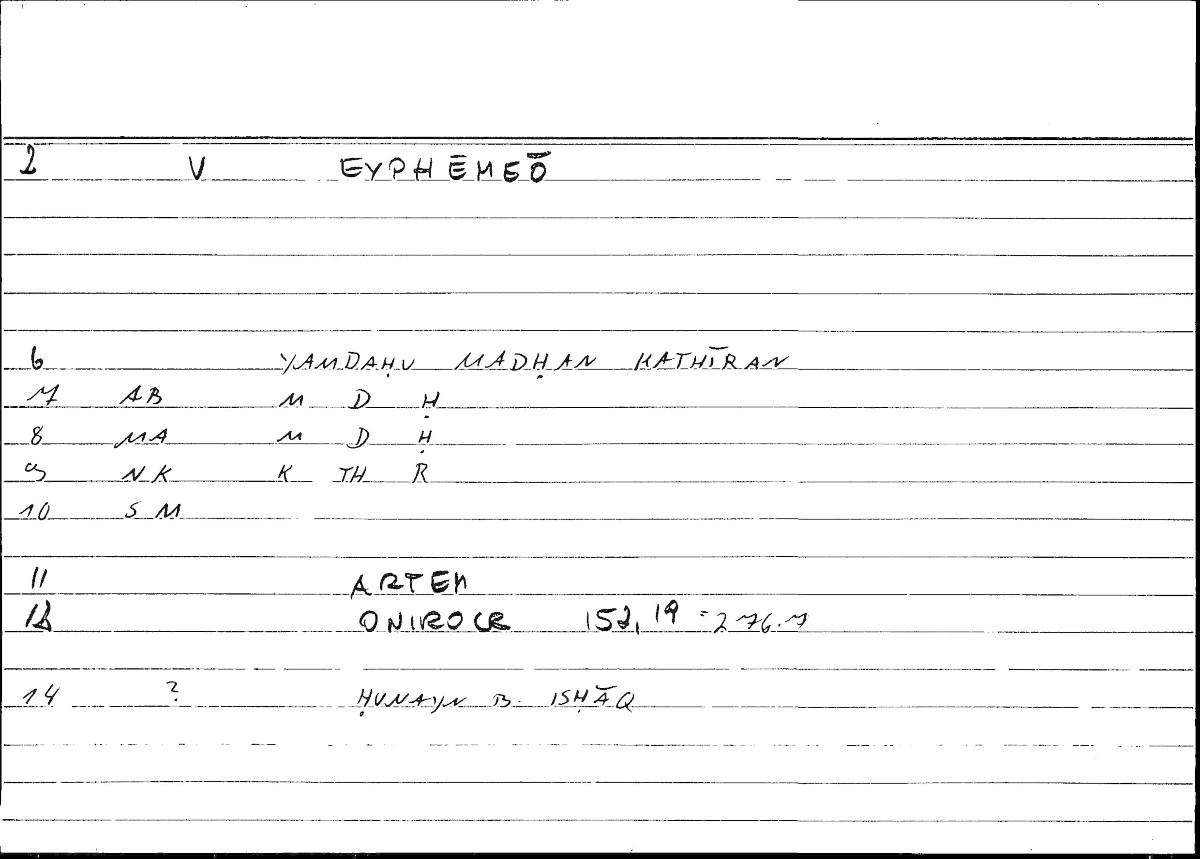 2 V EYPHĒMEŌ
6 YAMDAḤU MADḤAN KATHĪRAN
7 AB M D Ḥ
8 MA M D Ḥ
9 NK K TH R
10 SM
11 ARTEM
12 ONIROCR 152,19 = 276.7
14 ? ḤUNAYN B. ISḤĀQ